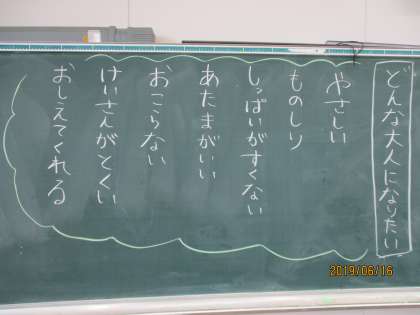 どんな大人になりたい
やさしい
ものしり
しっぱいがすくない
あたまがいい
おこらない
けいさんがとくい
おしえてくれる
2019/06/16